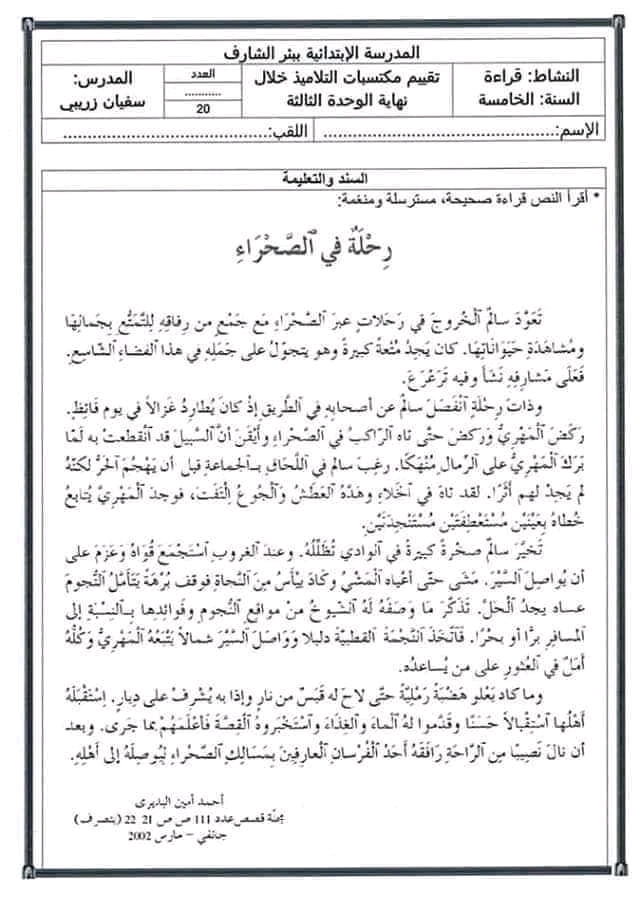 المدرسة الإبتدائية ببئر الشارف
النشاط: قراءة
السنة: الخامسة
تقييم مكتسبات التلاميذ خلال
نهاية الوحدة الثالثة
العدد
..........
20
المدرس:
سفيان زريبي
الإسم:............................................
اللقب:............................................
السند والتعليمة
* أقرأ النص قراءة صحيحة، مسترسلة ومنغمة:
رِحْلَةٌ في ٱلصَّحْرَاءِ
تَعَوَّدَ سالمٌ ٱلْخُروجَ في رَحَلاتٍ عبرَ ٱلصَّحْرَاءِ مَع جَمْعٍ من رِفاقِهِ لِلتَّمَتُّعِ بِجَمالِهَا
ومُشاهَدَةِ حَيَوَانَاتِهَا. كان يَجِدُ مُتْعةً كبيرةً وهو يتجوّلُ على جَمَلِهِ في هذا ٱلفضاءِ ٱلشّاسِعِ.
فَعَلَى مَشارِفِهِ نَشَأَ وفيه تَرَعْرَعَ.
وذاتَ رِحْلَةٍ ٱنْفَصَلَ سالمٌ عن أصحابِهِ في ٱلطّريقِ إذْ كانَ يُطارِدُ غَزالاً في يومٍ قائِظٍ.
ركَضَ ٱلْمَهْرِيُّ وَركضَ حتّى تاه ٱلرّاكبُ في ٱلصّحْراءِ وأَيْقَنَ أنَّ ٱلسّبيلَ قد ٱنقطعتْ به لَمّا
بَرَكَ ٱلْمَهْرِيُّ على ٱلرّمالِ مُنْهَكًا. رغِبَ سالم في ٱللّحَاقِ بـٱلجماعةِ قبل أن يَهْجُمَ ٱلحَرُّ لكنّهُ
لم يَجِدْ لهم أَثَرًا. لقد تاهَ في ٱخلاءِ وهَدَّهُ ٱلعَطَشُ وَٱلْجُوعُ اِلتَفَتَ، فوجدَ ٱلمَهْرِيَّ يُتابِعُ
خُطاهُ بِعَيْنَيْنِ مُسْتَعْطِفَتَيْنِ مُسْتَنْجِدَتَيْنِ.
تَخَيَّرَ سالمٌ صخْرةً كبيرةً في ٱلوادي تُظَلِّلُهُ. وعندَ ٱلغروبِ ٱسْتَجْمَعَ قُوَاهُ وَعَزمَ على
أن يُواصِلَ ٱلسَّيْرَ. مَشَى حتّى أَعْياه ٱلمَشْيُ وكادَ ييْأَسُ مِنَ ٱلنَّجاةِ فوقف بُرْهَةً يَتَأَمَّلُ ٱلنُّجومَ
عساه يجدُ ٱلْحَلَّ. تَذَكَّرَ ما وَصَفَهُ لَهُ ٱلشّيوخُ منْ مواقعِ ٱلنُّجومِ وفَوائِدِها بِـٱلنِّسْبَةِ إلى
ٱلمسافرِ برًّا أو بحْرًا. فَٱتَّخَذَ ٱلنَّجْمَةَ القطبيّة دليلا وَوَاصَلَ ٱلسَّيْرَ شمالاً يَتْبَعُهُ ٱلمَهْرِيُّ وَكُلُّهُ
أَمَلٌ في ٱلْعُثورِ على من يُساعِدُه.
وما كاد يَعْلو هَضْبَةً رَمْلِيَّةً حتّى لاحَ له قَبَسٌ من نارٍ وإذا به يُشْرِفُ على ديارٍ. اِسْتَقْبَلَهُ
أَهْلُهَا ٱسْتقْبالاً حَسَنًا وقَدّموا لهُ ٱلماءَ وٱلغِذَاءَ وٱسْتَخْبَروهُ ٱلقصّةَ فَأعْلَمَهُمْ بما جَرى. وبعد
أن نالَ نَصِيبًا مِن ٱلرَّاحَةِ رَافَقَهُ أحَدُ ٱلْفُرْسانِ ٱلعارِفينَ بِمَسالِكِ ٱلصَّحْراءِ لِيُوصِلَهُ إلى أَهْلِهِ.
أحمد أمين البديري
مجلّة قصص عدد 111 ص ص 21 22 (بتصرف)
جانفي – مارس 2002